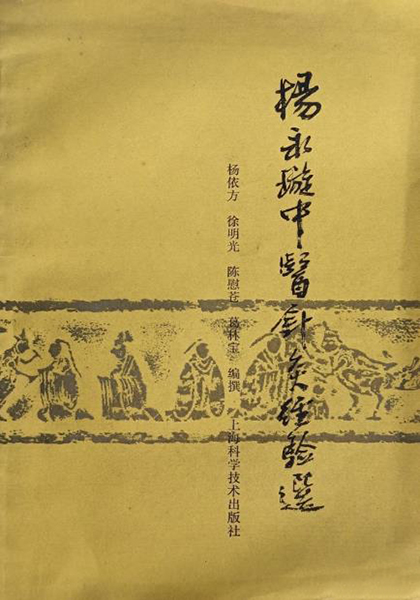 楊永璇中醫針灸經驗選
杨依方 徐明光 陈慰苍 葛林宝 编撰
上海科学技术出版社